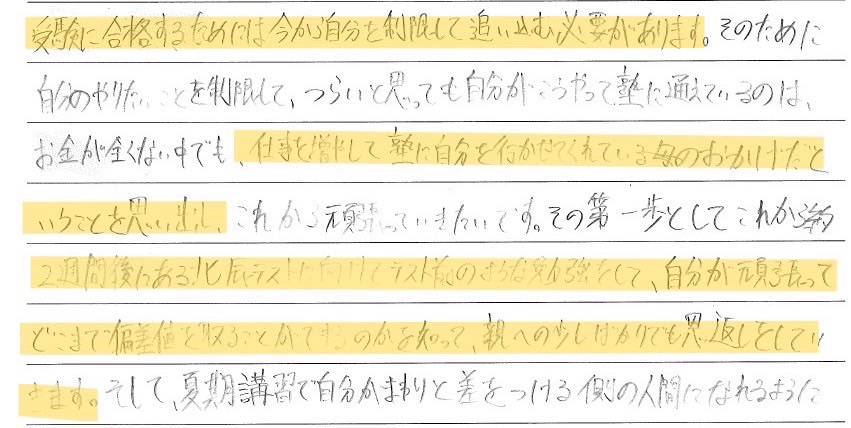 受験に合格するためには今から自分を制限して追い込む必要があります。そのために
自分のやりたいことを制限して、つらいと思っても自分がこうやって塾に通えているのは、
お金が全くない中でも、仕事を増やして塾に自分を行かせてくれている母のおかげだと
いうことを思い出し、これから頑張っていきたいです。その第一歩としてこれから約
2週間後にある北辰テストに向けてテスト前のような勉強をして、自分が頑張って
どこまで偏差値を取ることができるのかを知って、親への少しばかりでも恩返しをしてい
きます。そして、夏期講習で自分がまわりと差をつける側の人間になれるように